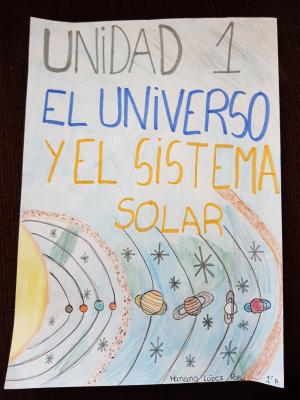 UNIDAD 1
EL UNIVERSO
Y EL SISTEMA
SOLAR
López 1ºA